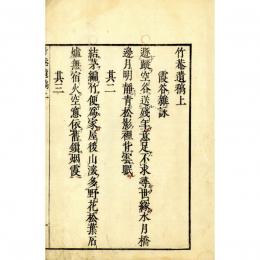 竹菴遺稿上
霞谷雜詠
遯跡空谷送殘年意足不求尋世緣水月橋
邊月明靜青松影裡雲眠
其二
結茅編竹便爲家屋後山溪多野花松葉石
爐無宿火空依舊鎖烟霞
其三